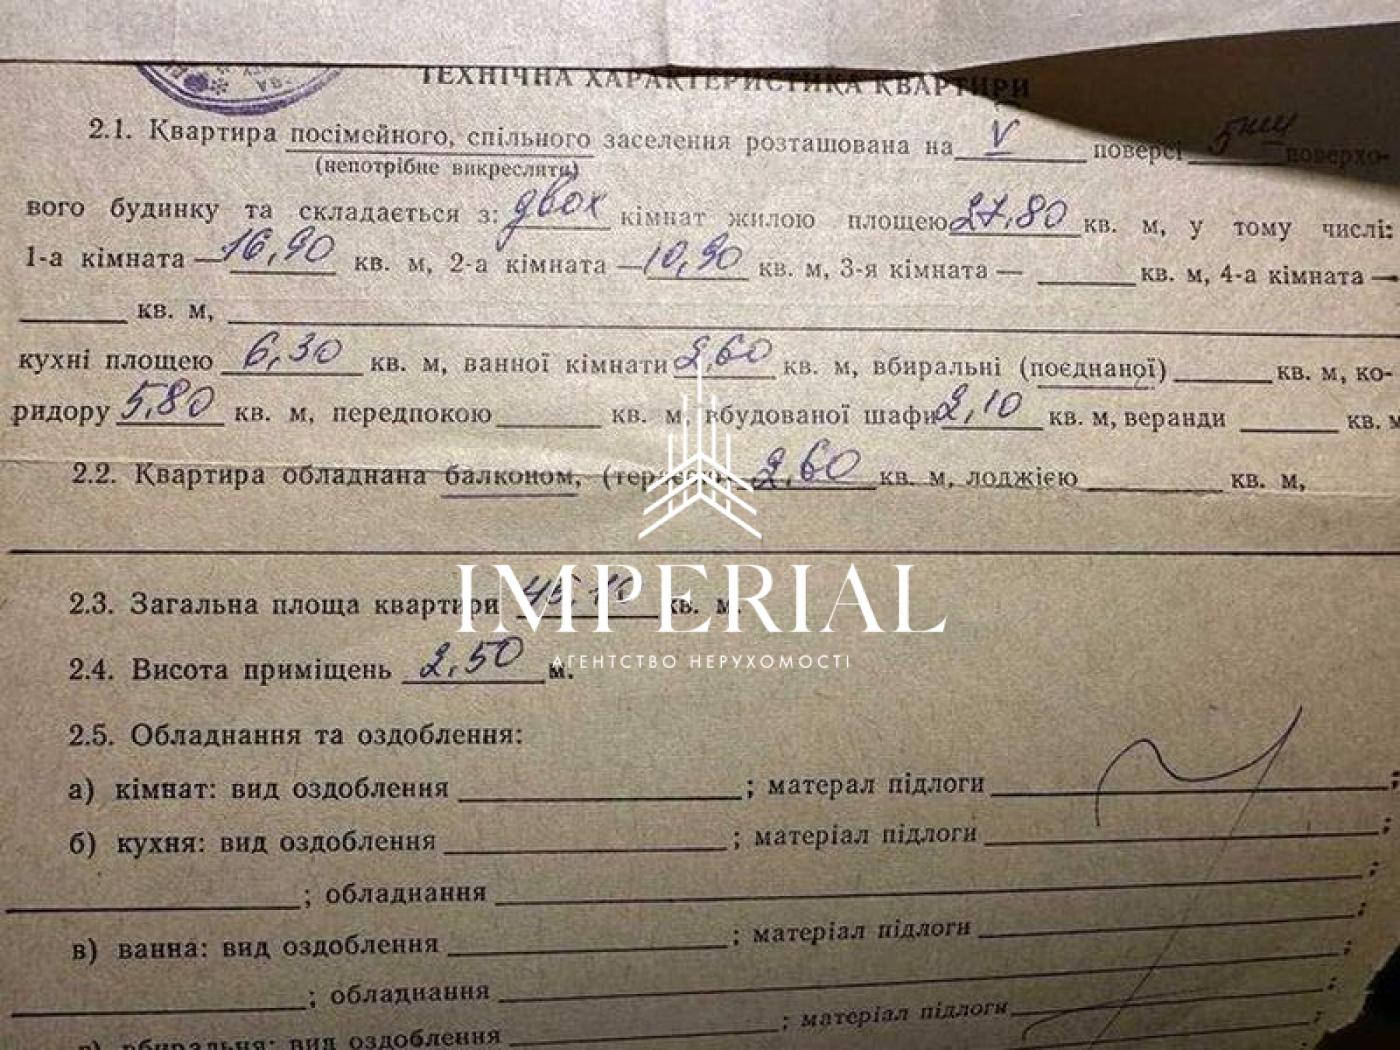 ТЕХНІЧНА ХАРАКТЕРИСТИКА КВАРТИРИ
2.1. Квартира посімейного, спільного заселення розташована на V поверсі 5ти поверхо-
(непотрібне викреслити)
вого будинку та складається з: двох кімнат жилою площею 27,80 кв. м, у тому числі:
1-а кімната — 16,90 кв. м, 2-а кімната — 10,90 кв. м, 3-я кімната — ______ кв. м, 4-а кімната —
______ кв. м,
кухні площею 6,30 кв. м, ванної кімнати 2,60 кв. м, вбиральні (поєднаної) ______ кв. м, ко-
ридору 5,80 кв. м, передпокою ______ кв. м, вбудованої шафи 2,10 кв. м, веранди ______ кв. м
2.2. Квартира обладнана балконом, (терасою) 2,60 кв. м, лоджією ______ кв. м,
2.3. Загальна площа квартири кв. м.
IMPERIAL
АГЕНТСТВО НЕРУХОМОСТІ
2.4. Висота приміщень 2,50 м.
2.5. Обладнання та оздоблення:
а) кімнат: вид оздоблення ______; матерал підлоги ______;
б) кухня: вид оздоблення ______; матеріал підлоги ______;
______; обладнання ______;
в) ванна: вид оздоблення ______; матеріал підлоги ______;
______; обладнання ______;
г) вбиральня: вид оздоблення ______; матеріал підлоги ______;